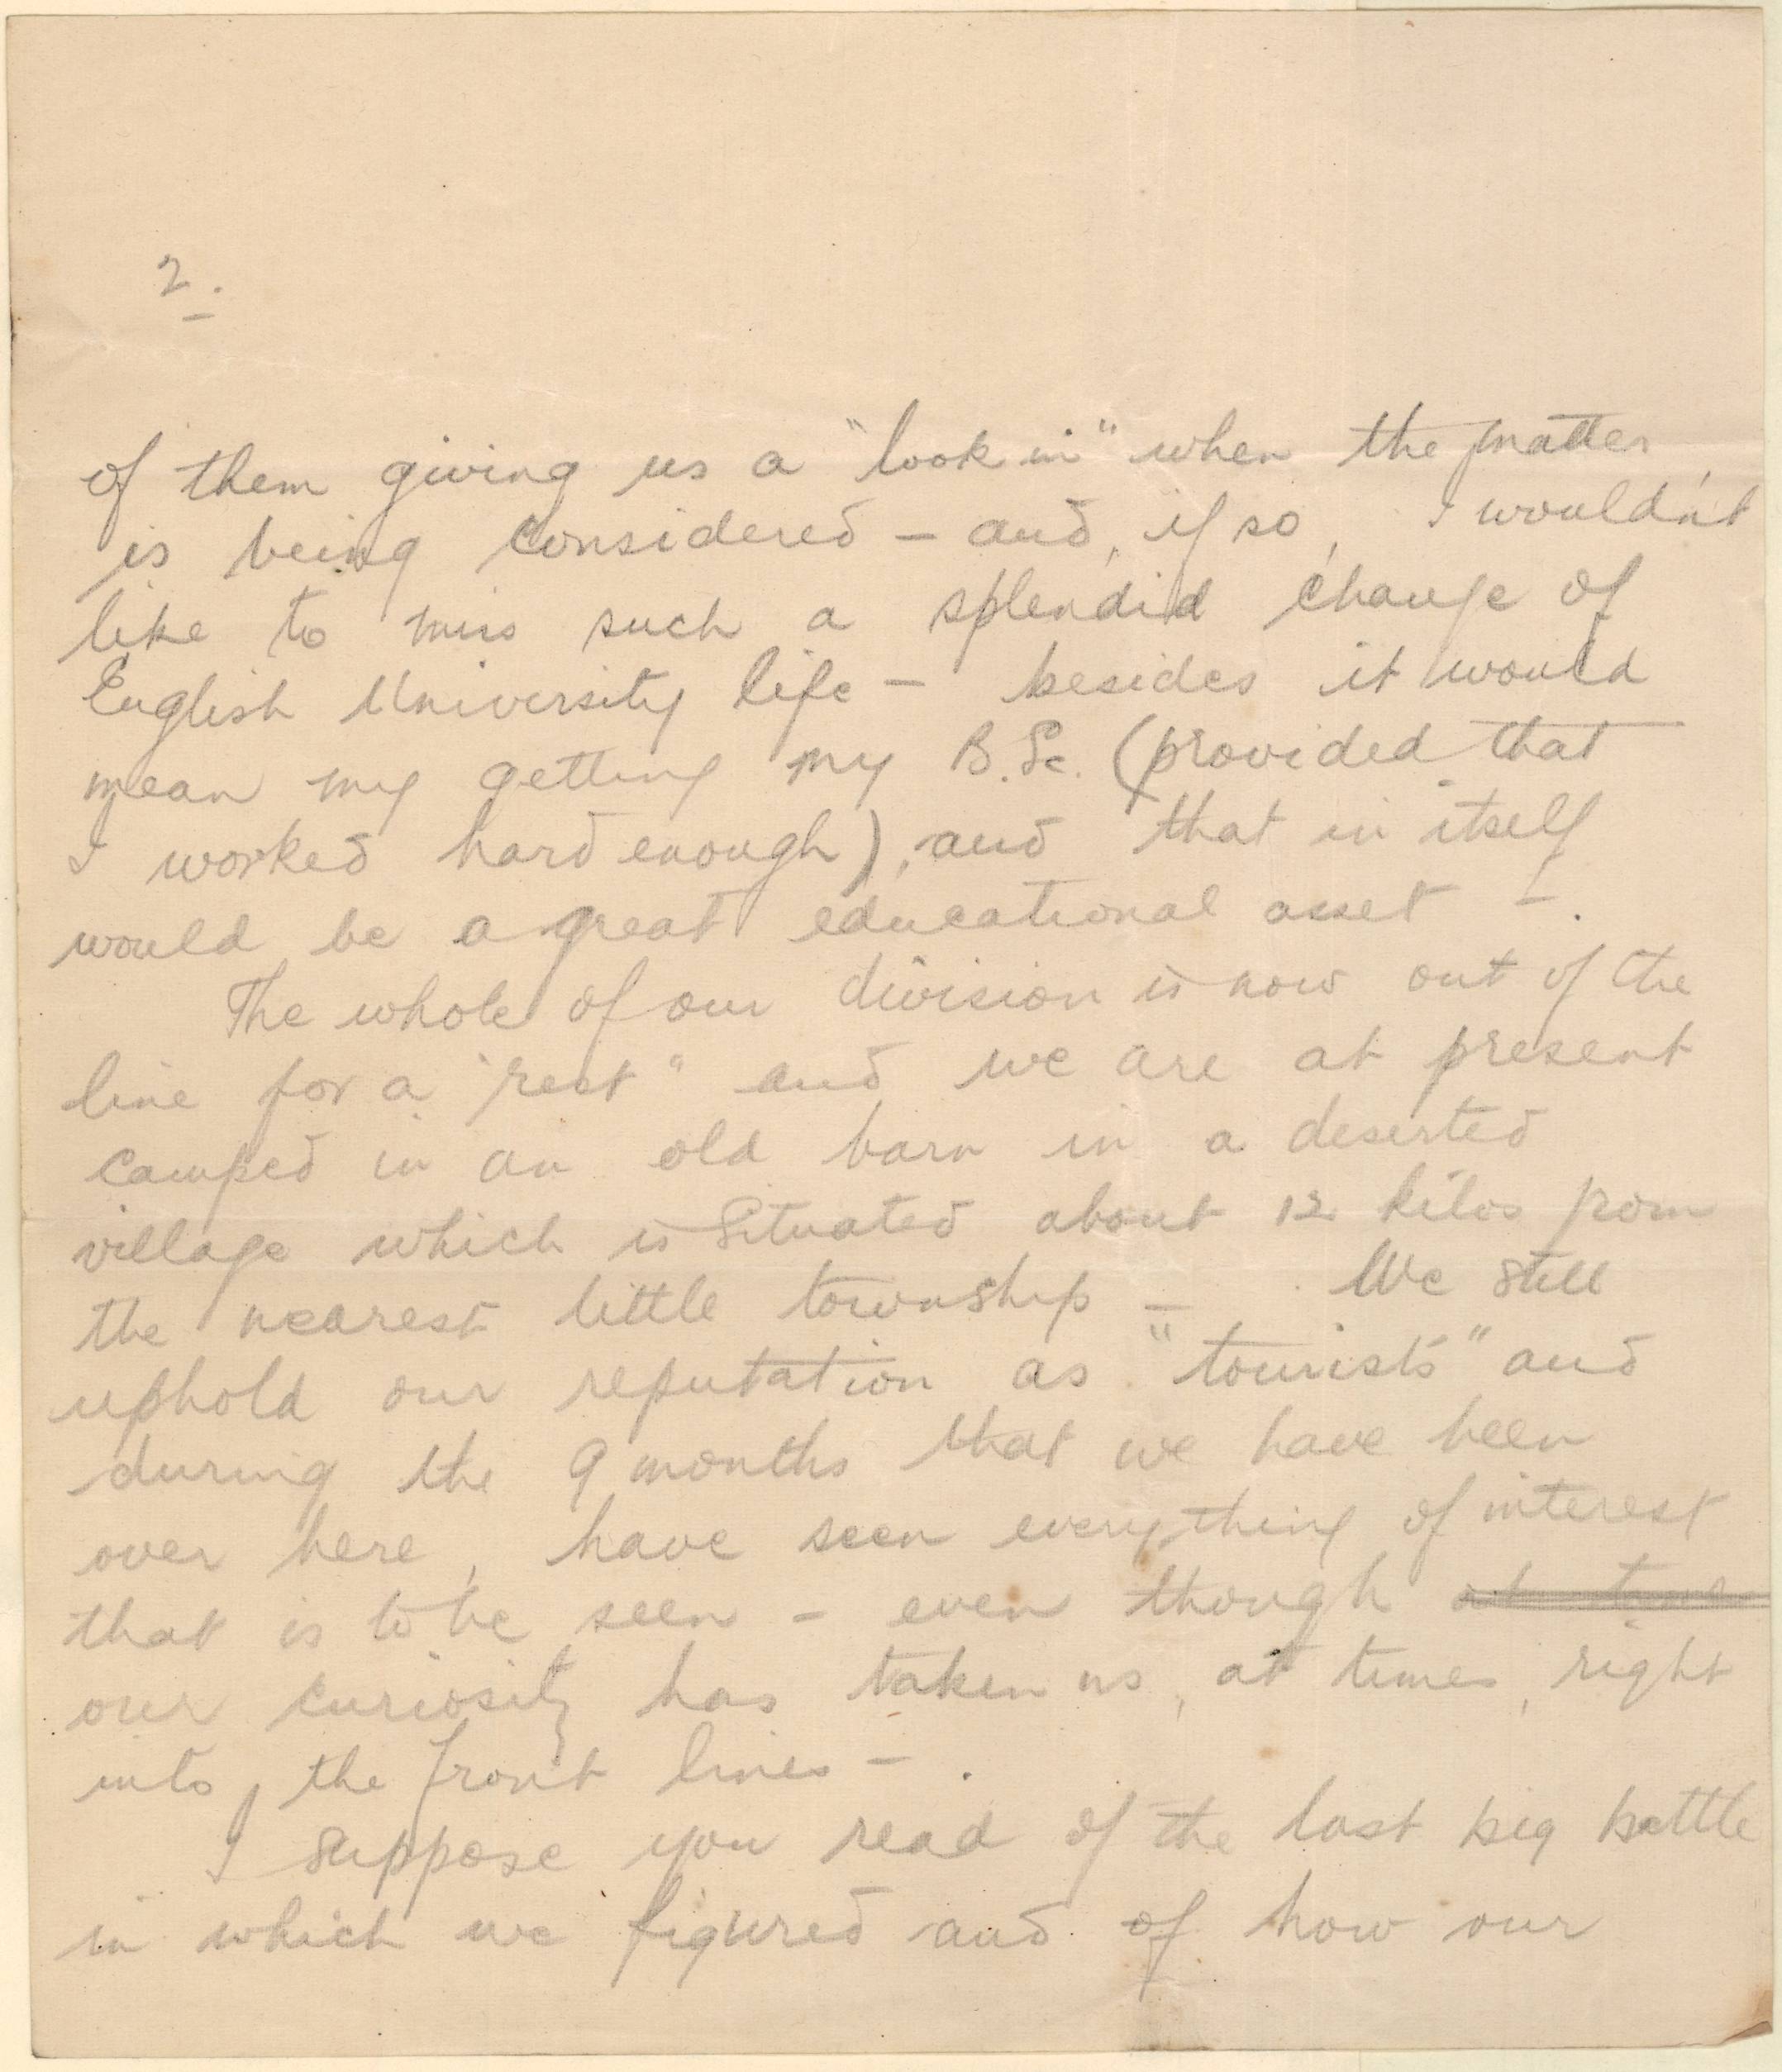 2.
of them giving us a "look in" when the matter
is being considered – and, if so, I wouldn't
like to miss such a splendid change of
English University life – besides it would
mean my getting my B.Sc. (provided that
I worked hard enough), and that in itself
would be a great educational asset –.
The whole of our division is now out of the
line for a "rest" and we are at present
camped in an old barn in a deserted
village which is situated about 12 kilos from
the nearest little township – We still
uphold our reputation as "tourists" and
during the 9 months that we have been
over here, have seen everything of interest
that is to be seen – even though at time
our curiosity has taken us, at times, right
into the front lines –.
I suppose you read of the last big battle
in which we figured and of how our